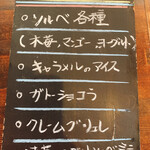 ○ソルベ各種
(木苺、マンゴー、ヨーグルト)
○キャラメルのアイス
○ガトーショコラ
○クレームブリュレ